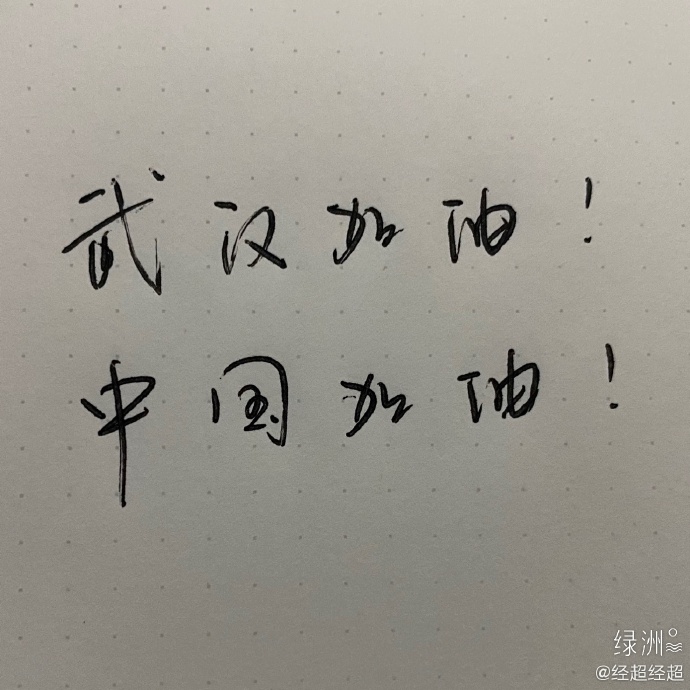 武汉加油！
中国加油！
绿洲
@经超经超